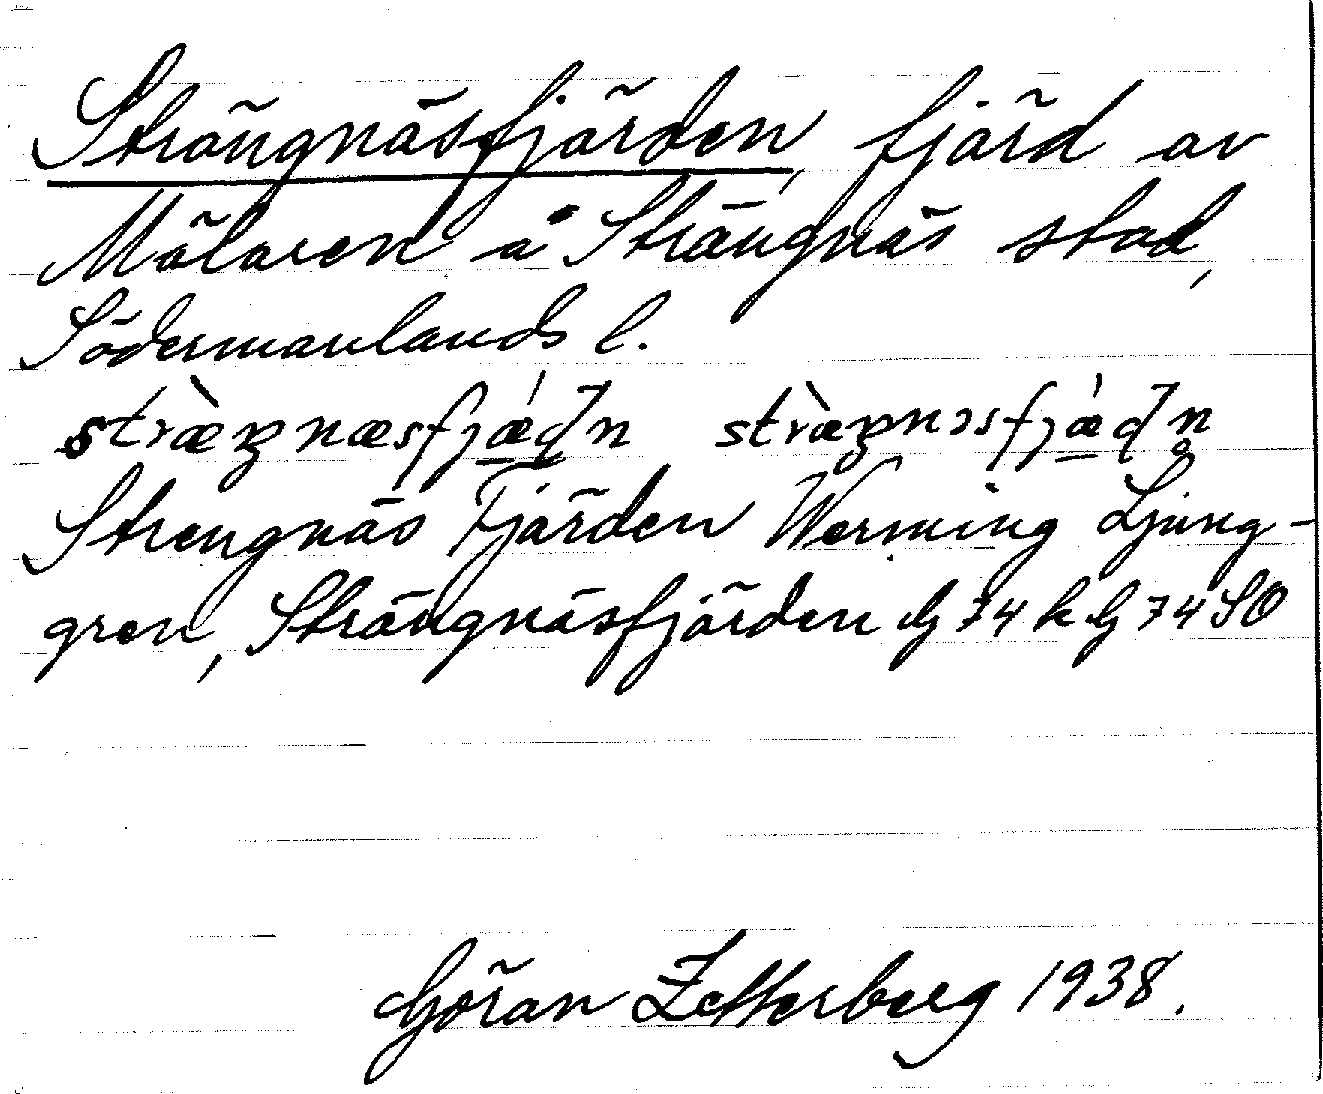 Strängnäsfjärden, fjärd av
Mälaren å Strängnäs stad,
Södermanlands l.
stræ̀ŋnæsfjǽḍn stræ̀ŋnɔsfjǽḍn̥
Strengnäs Fjärden Werming Ljung-
gren, Strängnäsfjärden G 74 k G 74 SO
Göran Zetterberg 1938.